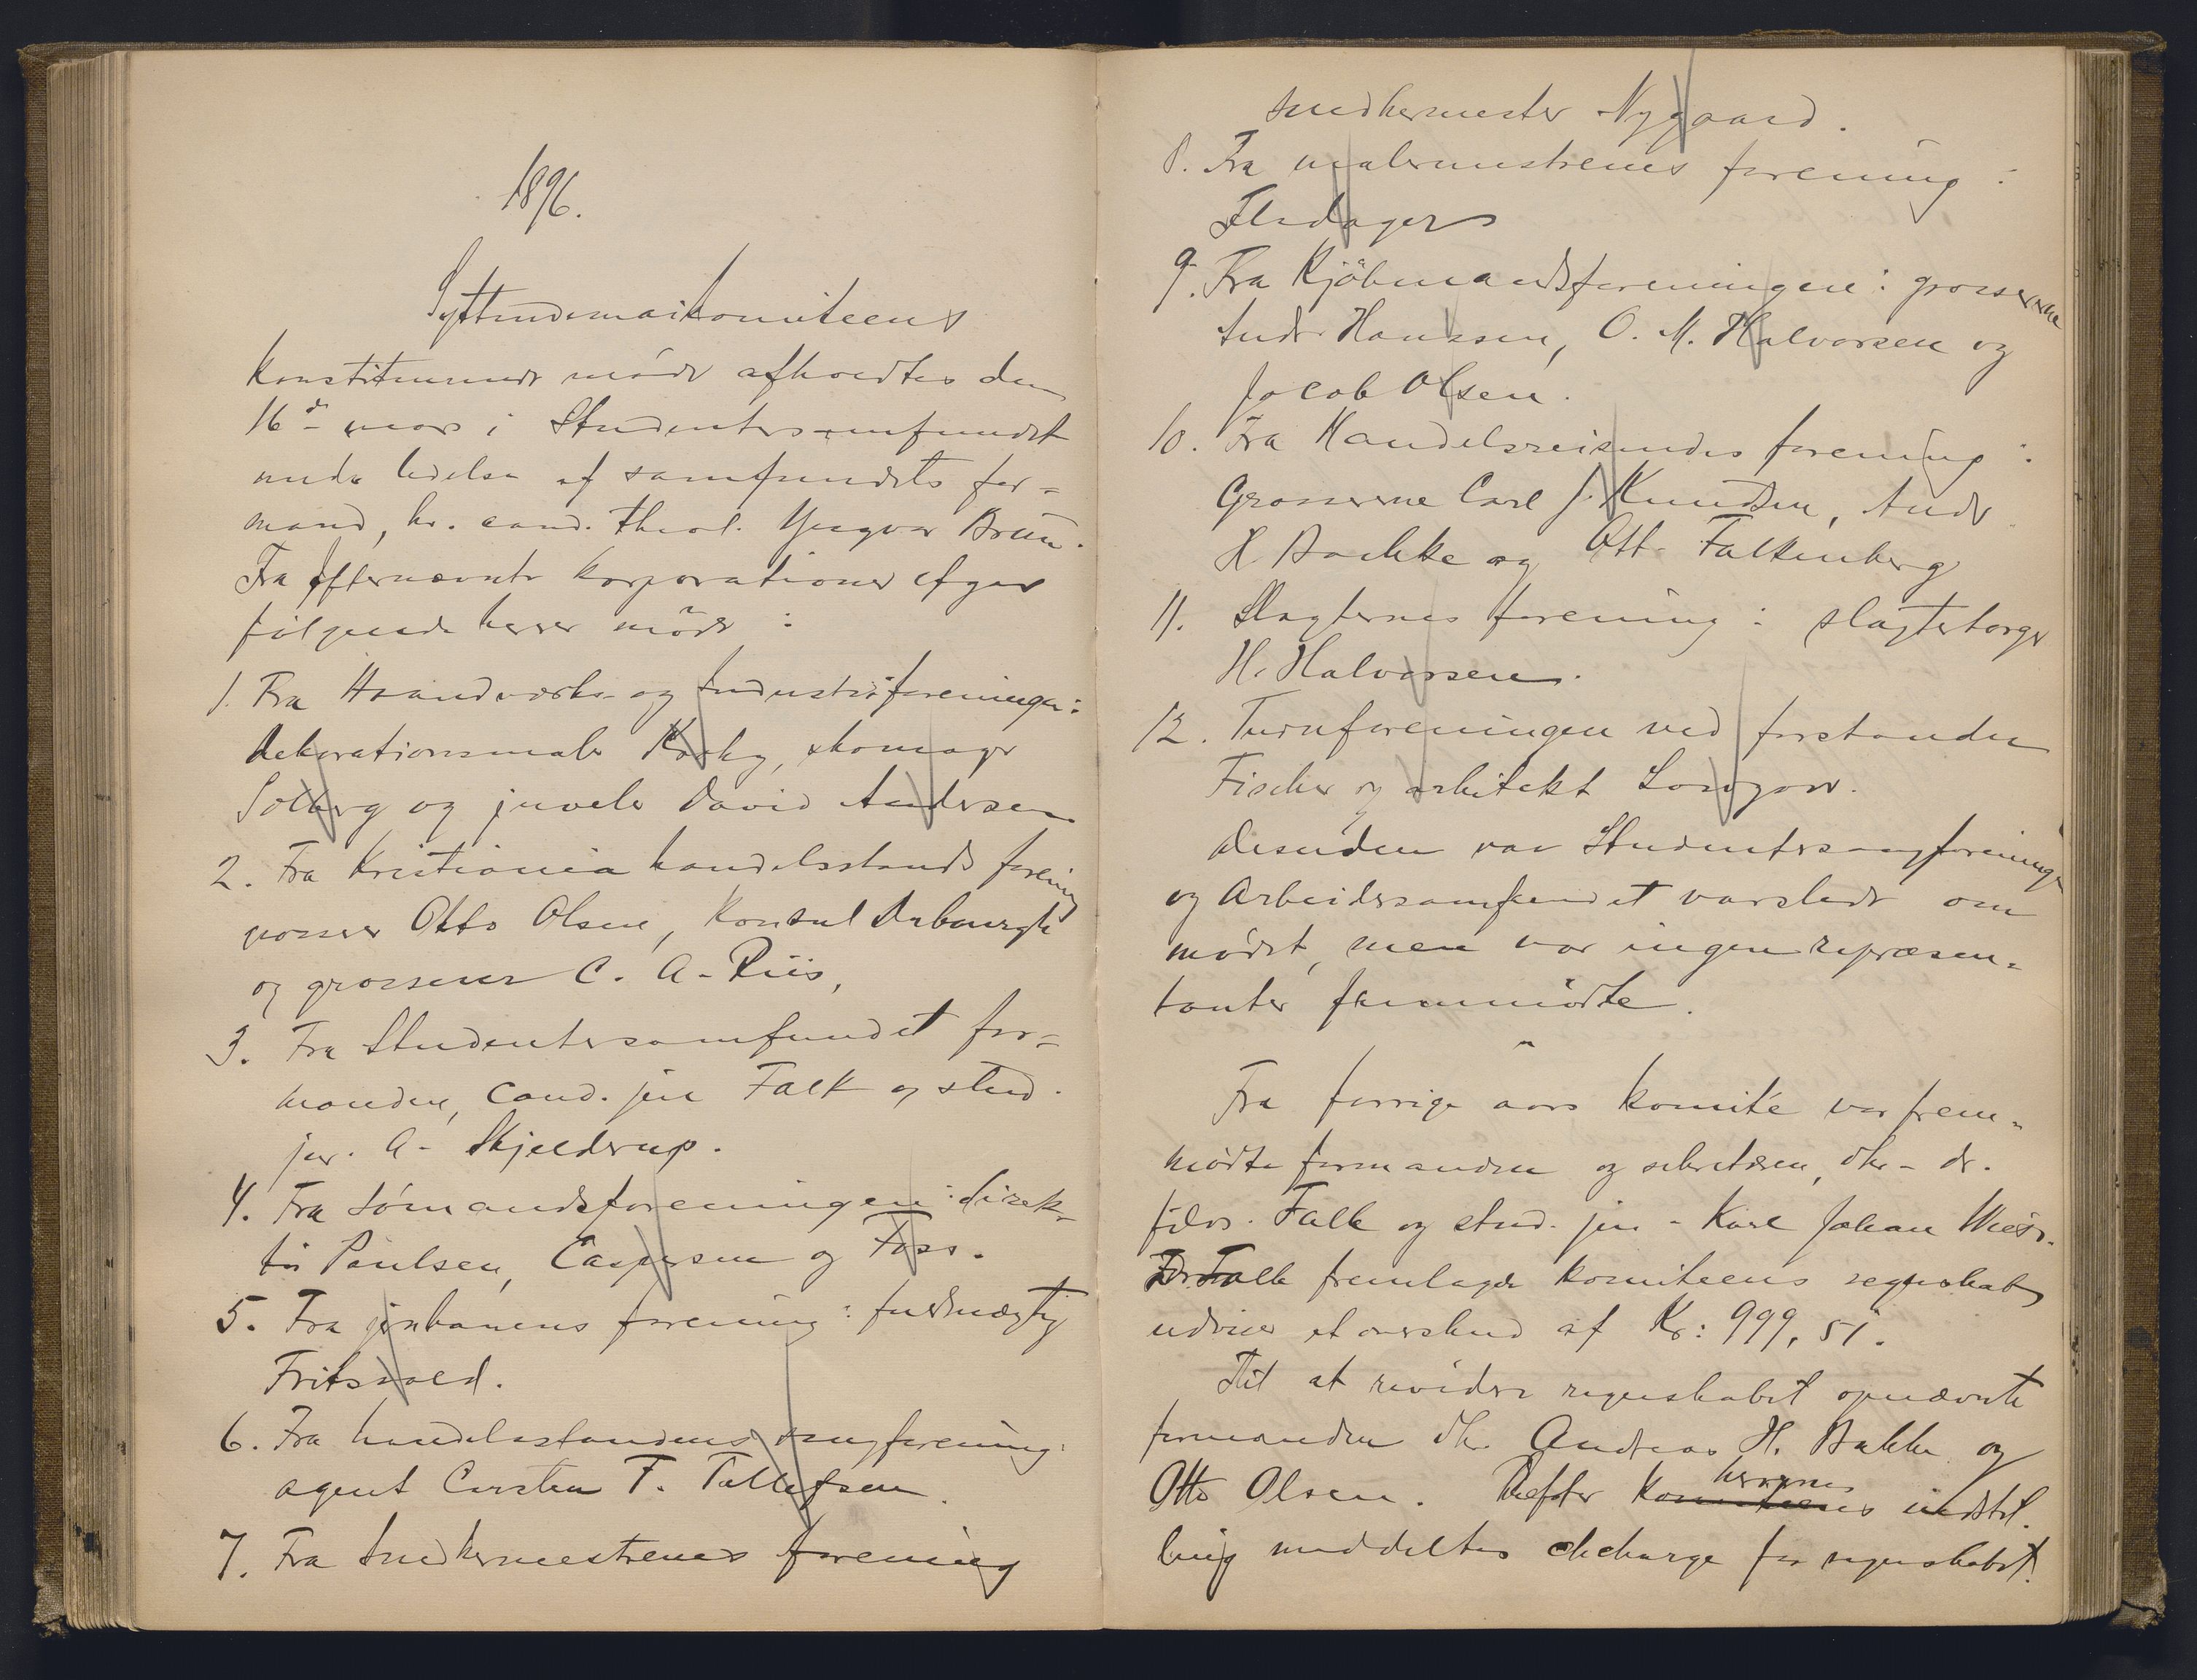 1896.
Syttendemaikomiteens
konstituerende møde afholdtes den
16de mars i Studentersamfundet
under ledelse af samfundets for=
mand, hr. cand. theol. Yngvar Brun.
Fra efternævnte korporationer afgav
følgende herrer møde :
1. Fra Haandværks- og Industriforeningen:
dekorationsmaler Krohg, skomager
Solberg og juveler David Andersen
2. Fra Kristiania handelsstands forening
grosser Otto Olsen, konsul
og grosserer C. A. Riis,
3. Fra Studentersamfundet for=
manden, cand. jur Falk og stud.
jur. A. Skjelderup.
4. Fra Sömandsforeningen: direk=
tör Paulsen, Caspersen og Foss.
5. Fra jernbanens forening: fuldmægtig
Fritsvold.
6. Fra handelsstandens sangforening:
agent Carsten T. Tallefsen.
7. Fra Snedkermestrenes forening
snedkermester Nygaard.
8. Fra malermestrenes forening :
Fladager
9. Fra Kjöbmandsforeningen: grossererne
Andr. Hanssen, O. M. Halvorsen og
Jacob Olsen.
10. Fra Handelsreisendes forening :
Grossererne Carl J. Knudsen, Andr
H Bakke og Ott. Falkenberg
11. Slagternes forening : slagterborger
H. Halvorsen.
12. Turnforeningen ved forstander
Fischer og arkitekt
Desuden var Studentersangforeningen
og Arbeidersamfundet varslede om
mödet, men var ingen repræsen=
tanter fremmödte.
Fra forrige aars komité var frem=
mödte formanden og sekretæren, dhr. dr.
filos. Falk og stud. jur. Karl Johan
Dr. Falk fremlagde komiteens regnskab
udviser et overskud af Kr: 999,51.
Til at revidere regnskabet opnævnte
formanden dhr. Andreas H. Bakke og
Otto Olsen. Efter komiteens herrernes indstil=
ling meddeltes decharge for regnskabet.